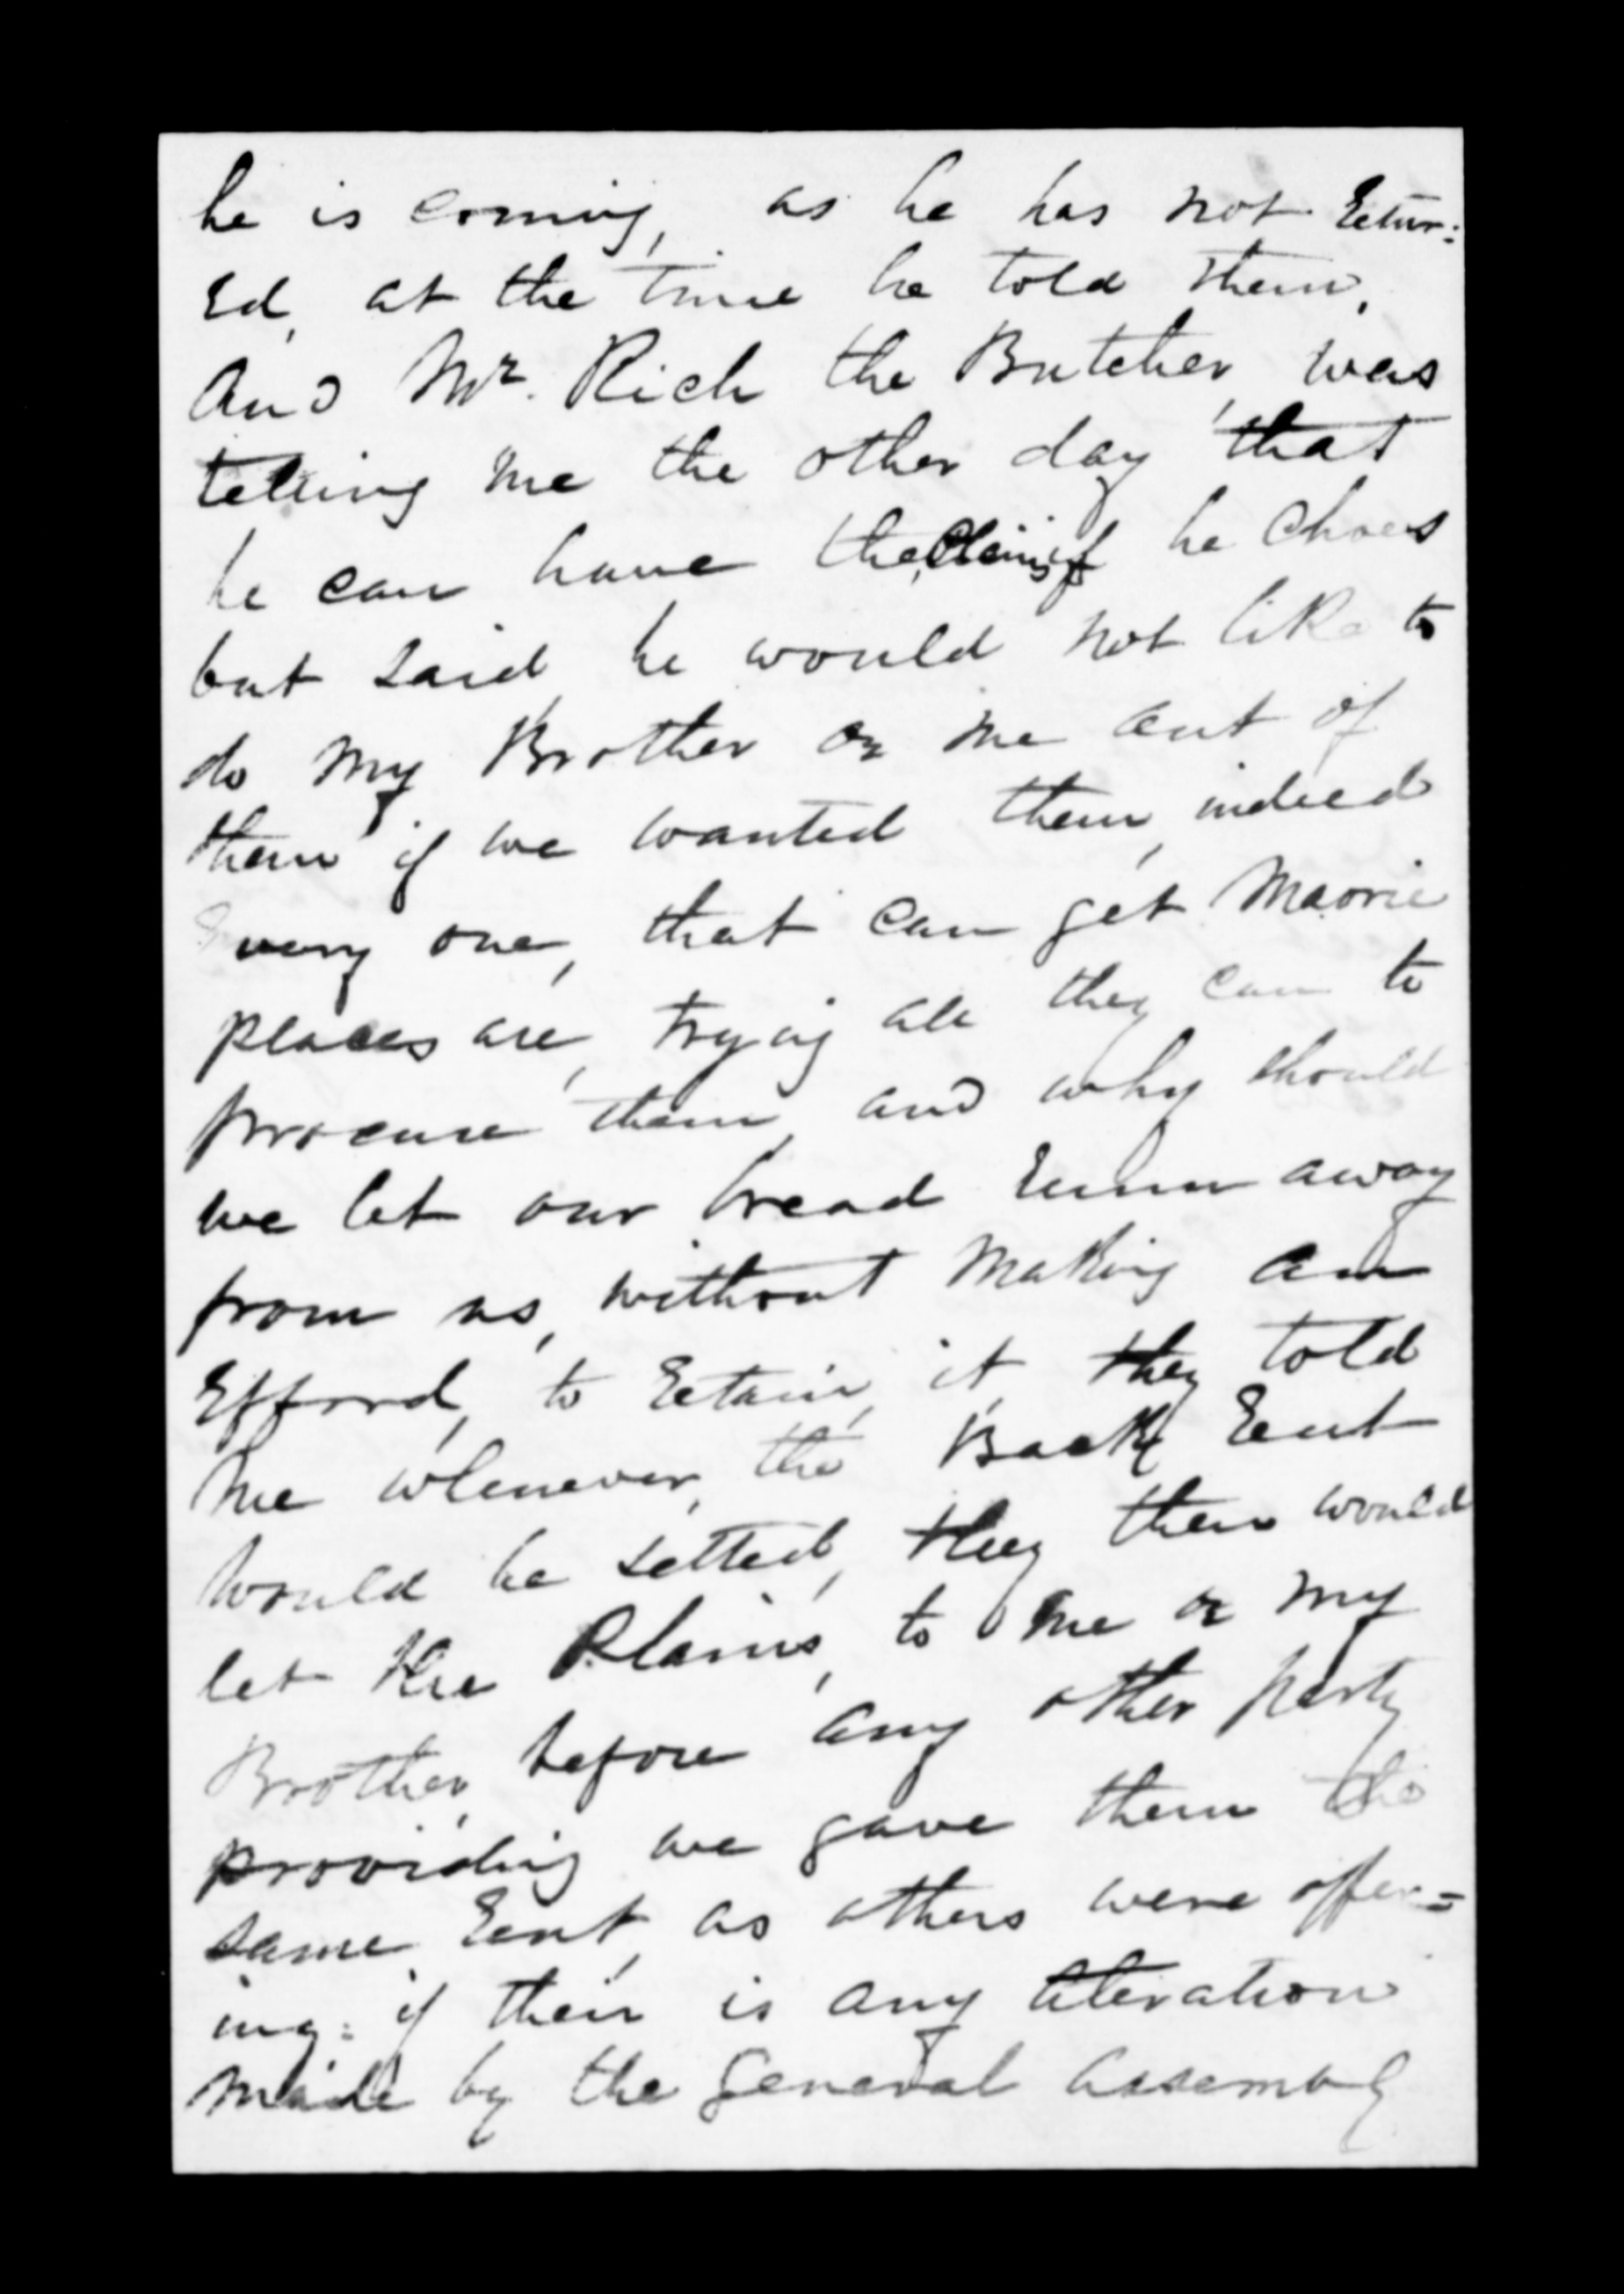 he is coming, as he has not retur:
ed, at the time he told them,
And Mr. Rich the Butcher, was
telling me the other day that
he can have the Plains if he choes
but said, he would not like to
do my Brother or me out of
them if we wanted them, indeed
every one, that can get Maorie
places are, trying all they can to
procure them, and why should
we let our bread runn away
from us, without making an
Efford, to retain, it, they told
me whenever, the Back rent
would be setted, they then would
let the Plains, to me or my
Brother, before any other party
providing we gave them the
same rent, as others were offer=
ing: if their is any alteration
made by the General Assembly